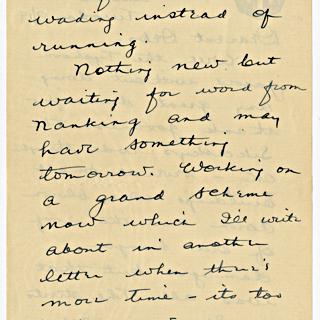 wading instead of
running.
Nothing new but
waiting for word from
Nanking and may
have something
tomorrow. Working on
a grand scheme
now which I'll write
about in another
letter when there's
more time - its too